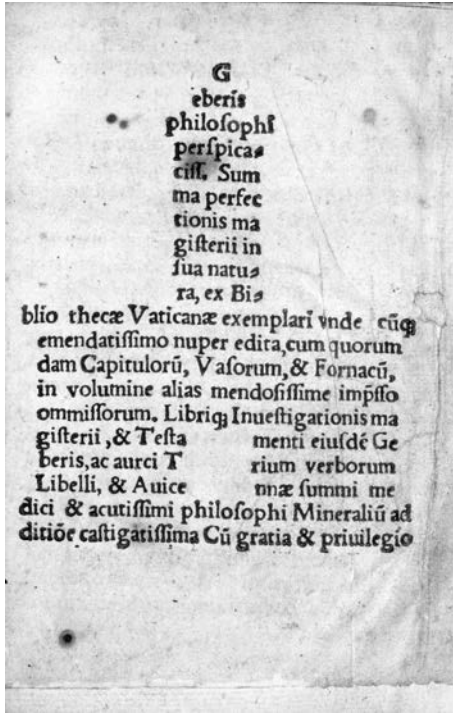 G
eberis
philoſophi
perſpica⸗
ciſſ. Sum
ma perfec
tionis ma
giſterii in
ſua natu⸗
ra, ex Bi⸗
blio thecæ Vaticanæ exemplari vnde cūꝗ
emendatiſſimo nuper edita,cum quorum
dam Capitulorū, Vaſorum,& Fornacū,
in volumine alias mendoſiſſime imp̄ſſo
ommiſſorum. Libriꝗ Inueſtigationis ma
giſterii ,& Teſta menti eiuſdē Ge
beris,ac aurei T rium verborum
Libelli, & Auice nnæ ſummi me
dici & acutiſſimi philoſophi Mineraliū ad
ditiōe caſtigatiſſima Cū gratia & priuilegio